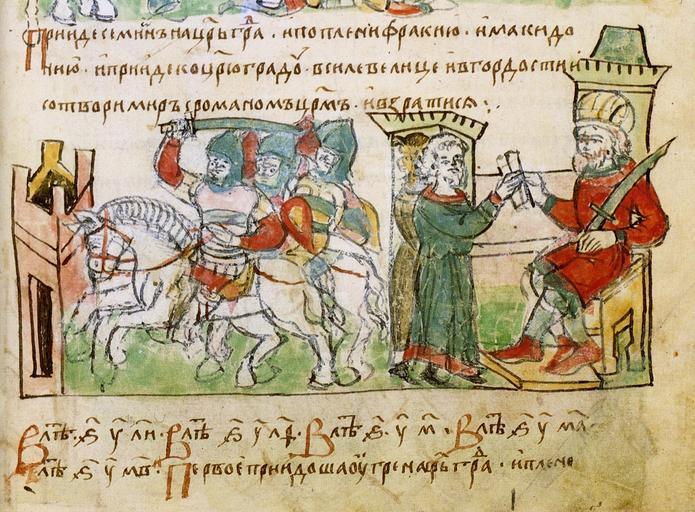 Прииде семиѡнъ на цр҃ьгра д. и поплени фракию. и макидо
нию. и прииде ко цр҃юградоу. в силе велице и в гордости и
сотвори миръ с романомъ цр҃мъ. и възратися:.
В лт҃ѣ. ѕ҃ у ли. В лт҃ѣ ѕ҃ у л҃ѳ. В лт҃ѣ. ѕ҃. у м. В лт҃ѣ ѕ҃ у ма.
В лт҃ѣ ѕ҃ у мв. Первое приидоша оугре на цр҃ьгра д. и плене